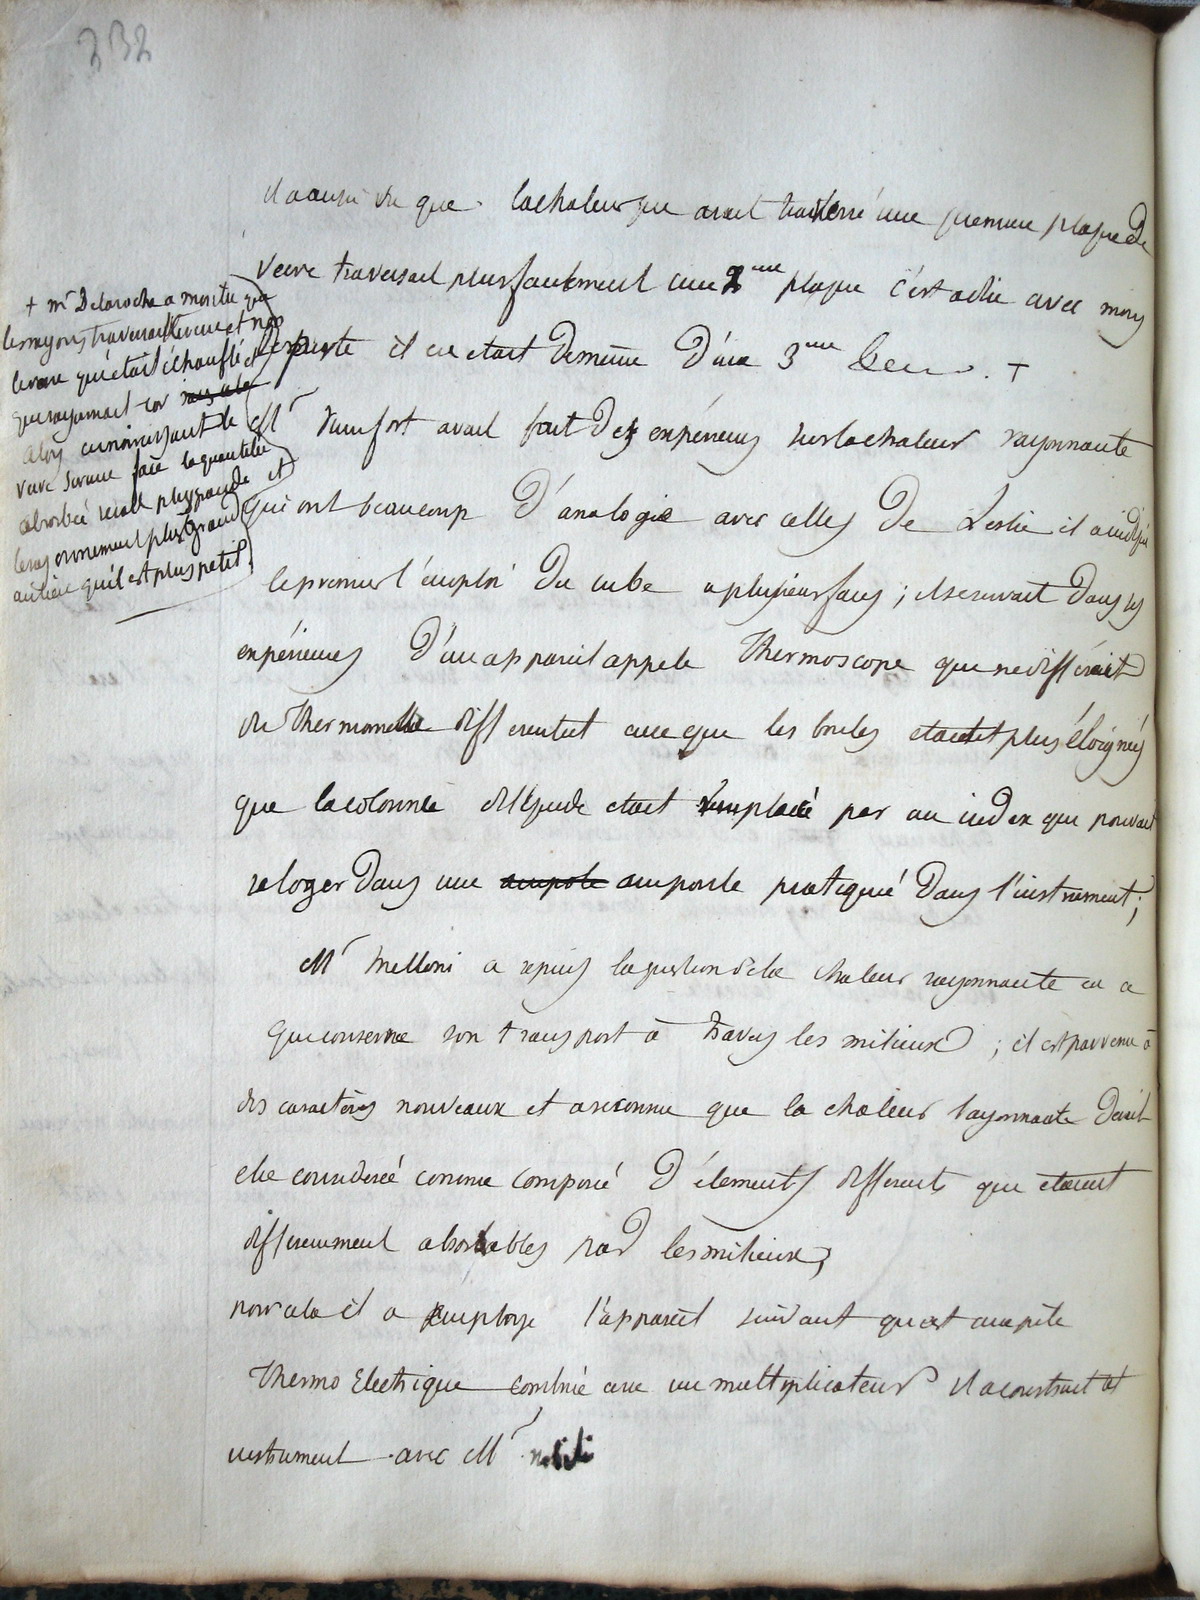 332
il a aussi vu que la chaleur qui avait traversé une premiere plaque de
verre traversait plus facilement une 2eme plaque c'est adire avec moins
de perte il en etait de meme d'une 3eme &c. +
+ mr Delaroche a montré que
les rayons traversaient le verre et non
le verre qui était échauffé et
qui rayonnait car
alors en noircissant le
verre sur une face la quantitée
absorbée serait plus grande et
le rayonnement plus grand
au lieu qu'il est plus petit.
Mr Rumfort avait fait des expériences sur la chaleur rayonnante
qui ont beaucoup d'analogie avec celles de Leslie il a indiqué
le premier l'emploi du cube a plusieurs faces ; il se servait dans ses
expériences d'un appareil appele Thermoscope qui ne différait
du Thermometre differentiel que les boules etaient plus éloignées
que la colonne de liquide etait remplacée par un index qui pouvait
se loger dans une ampole ampoule pratiquée dans l'instrument ;
Mr Melloni a repris la question de la chaleur rayonnante en ce
qui conserne son transport à travers les milieux ; il est parvenu à
des caractères nouveaux et a reconnu que la chaleur rayonnante devait
etre considerée comme composée d'élements differents qui etaient
differemment absorbables par les milieux ;
pour cela il a employe l'appareil suivant qui est une pile
Thermo Electrique combinée avec un multiplicateur il a construit cet
instrument avec Mr nobili